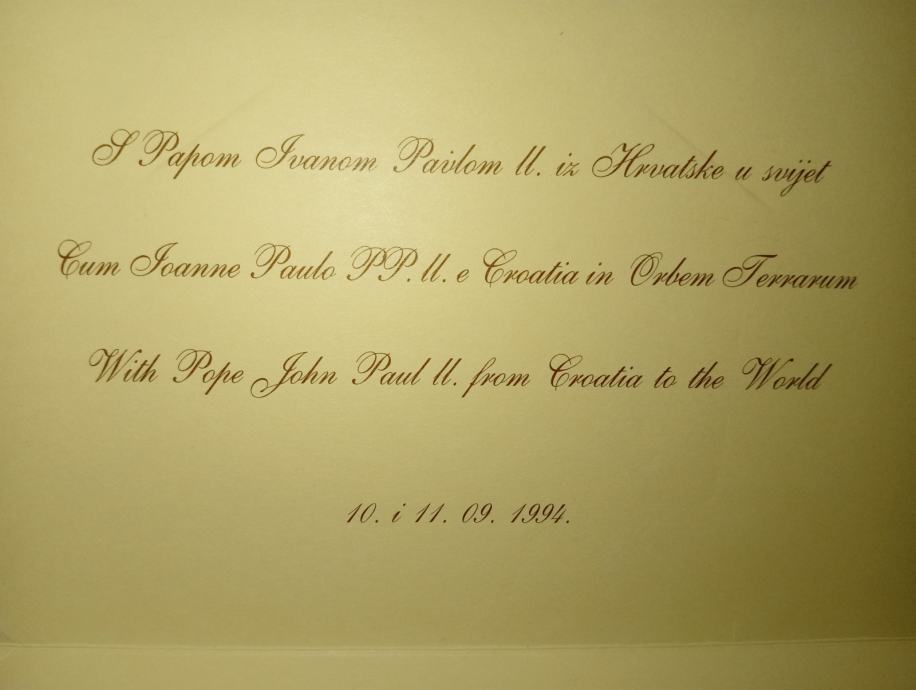 S Papom Ivanom Pavlom II. iz Hrvatske u svijet
Cum Ioanne Paulo PP. II. e Croatia in Orbem Terrarum
With Pope John Paul II. from Croatia to the World
10. i 11. 09. 1994.